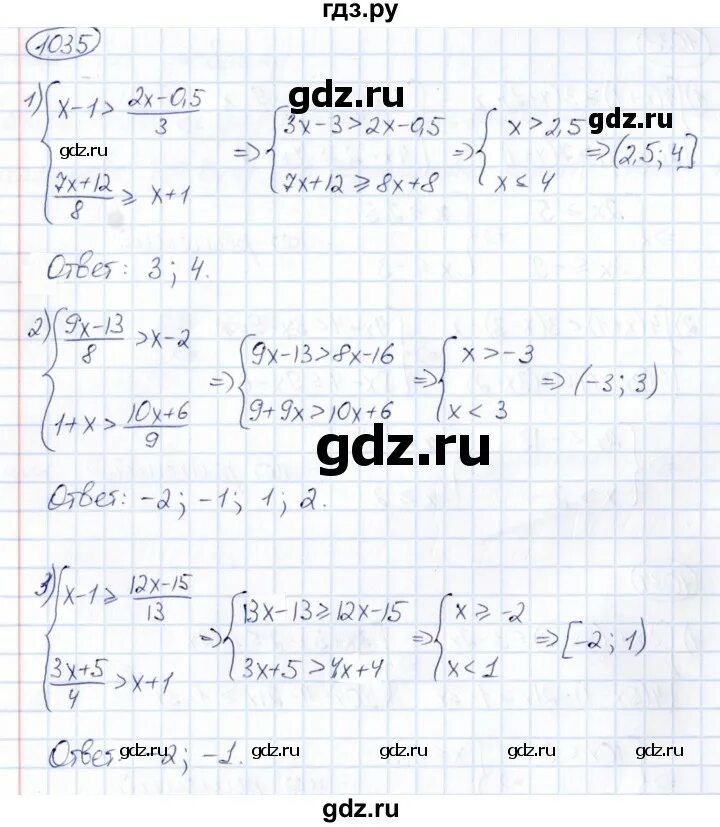 гдз.ру
1035
1) { x-1 > (2x-0,5)/3 ; (7x+12)/8 ⩾ x+1 => { 3x-3 > 2x-0,5 ; 7x+12 ⩾ 8x+8 => { x > 2,5 ; x ⩽ 4 => (2,5; 4]
gdz.ru
gdz.ru
gdz.ru
Ответ: 3; 4.
2) { (9x-13)/8 > x-2 ; 1+x > (10x+6)/9 => { 9x-13 > 8x-16 ; 9+9x > 10x+6 => { x > -3 ; x < 3 => (-3; 3)
gdz.ru
Ответ: -2; -1; 1; 2.
3) { x-1 ⩾ (12x-15)/13 ; (3x+5)/4 > x+1 => { 13x-13 ⩾ 12x-15 ; 3x+5 > 4x+4 => { x ⩾ -2 ; x < 1 => [-2; 1)
Ответ: 2; -1.
gdz.ru gdz.ru gdz.ru gdz.ru gdz.ru
gdz.ru